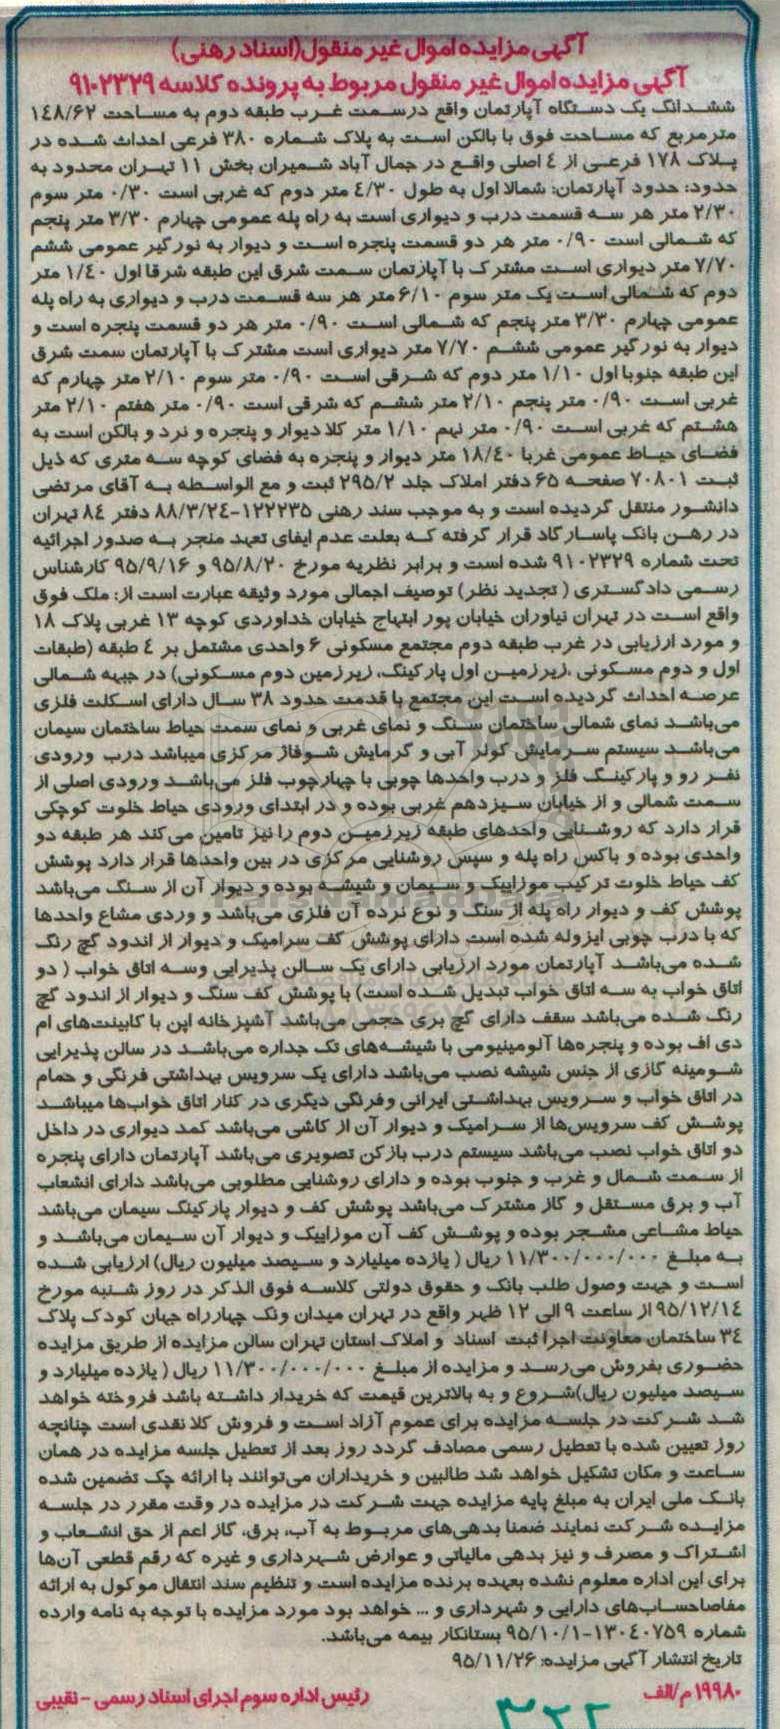 آگهی مزایده اموال غیر منقول(اسناد رهنی)
آگهی مزایده اموال غیر منقول مربوط به پرونده کلاسه ۹۱۰۲۳۲۹
ششدانگ یک دستگاه آپارتمان واقع درسمت غرب طبقه دوم به مساحت ۱۴۸/۶۲
مترمربع که مساحت فوق با بالکن است به پلاک شماره ۳۸۰ فرعی احداث شده در
پلاک ۱۷۸ فرعی از ۴ اصلی واقع در جمال آباد شمیران بخش ۱۱ تهران محدود به
حدود: حدود آپارتمان: شمالا اول به طول ۴/۳۰ متر دوم که غربی است ۰/۳۰ متر سوم
۲/۳۰ متر هر سه قسمت درب و دیواری است به راه پله عمومی چهارم ۳/۳۰ متر پنجم
که شمالی است ۰/۹۰ متر هر دو قسمت پنجره است و دیوار به نورگیر عمومی ششم
۷/۷۰ متر دیواری است مشترک با آپارتمان سمت شرق این طبقه شرقا اول ۱/۴۰ متر
دوم که شمالی است یک متر سوم ۶/۱۰ متر هر سه قسمت درب و دیواری به راه پله
عمومی چهارم ۳/۳۰ متر پنجم که شمالی است ۰/۹۰ متر هر دو قسمت پنجره است و
دیوار به نورگیر عمومی ششم ۷/۷۰ متر دیواری است مشترک با آپارتمان سمت شرق
این طبقه جنوبا اول ۱/۱۰ متر دوم که شرقی است ۰/۹۰ متر سوم ۲/۱۰ متر چهارم که
غربی است ۰/۹۰ متر پنجم ۲/۱۰ متر ششم که شرقی است ۰/۹۰ متر هفتم ۲/۱۰ متر
هشتم که غربی است ۰/۹۰ متر نهم ۱/۱۰ متر کلا دیوار و پنجره و نرد و بالکن است به
فضای حیاط عمومی غربا ۱۸/۴۰ متر دیوار و پنجره به فضای کوچه سه متری که ذیل
ثبت ۷۰۸۰۱ صفحه ۶۵ دفتر املاک جلد ۲۹۵/۲ ثبت و مع الواسطه به آقای مرتضی
دانشور منتقل گردیده است و به موجب سند رهنی ۱۲۲۲۳۵-۸۸/۳/۲۴ دفتر ۸۴ تهران
در رهن بانک پاسارگاد قرار گرفته که بعلت عدم ایفای تعهد منجر به صدور اجرائیه
تحت شماره ۹۱۰۲۳۲۹ شده است و برابر نظریه مورخ ۹۵/۸/۲۰ و ۹۵/۹/۱۶ کارشناس
رسمی دادگستری ( تجدید نظر) توصیف اجمالی مورد وثیقه عبارت است از: ملک فوق
واقع است در تهران نیاوران خیابان پور ابتهاج خیابان خداوردی کوچه ۱۳ غربی پلاک ۱۸
و مورد ارزیابی در غرب طبقه دوم مجتمع مسکونی ۶ واحدی مشتمل بر ۴ طبقه (طبقات
اول و دوم مسکونی ،زیرزمین اول پارکینگ، زیرزمین دوم مسکونی) در جبهه شمالی
عرصه احداث گردیده است این مجتمع با قدمت حدود ۳۸ سال دارای اسکلت فلزی
می‌باشد نمای شمالی ساختمان سنگ و نمای غربی و نمای سمت حیاط ساختمان سیمان
می‌باشد سیستم سرمایش کولر آبی و گرمایش شوفاژ مرکزی میباشد درب ورودی
نفر رو و پارکینگ فلز و درب واحدها چوبی با چهارچوب فلز می‌باشد ورودی اصلی از
سمت شمالی و از خیابان سیزدهم غربی بوده و در ابتدای ورودی حیاط خلوت کوچکی
قرار دارد که روشنایی واحدهای طبقه زیرزمین دوم را نیز تامین می‌کند هر طبقه دو
واحدی بوده و باکس راه پله و سپس روشنایی مرکزی در بین واحدها قرار دارد پوشش
کف حیاط خلوت ترکیب موزاییک و سیمان و شیشه بوده و دیوار آن از سنگ می‌باشد
پوشش کف و دیوار راه پله از سنگ و نوع نرده آن فلزی می‌باشد و وردی مشاع واحدها
که با درب چوبی ایزوله شده است دارای پوشش کف سرامیک و دیوار از اندود گچ رنگ
شده می‌باشد آپارتمان مورد ارزیابی دارای یک سالن پذیرایی وسه اتاق خواب ( دو
اتاق خواب به سه اتاق خواب تبدیل شده است) با پوشش کف سنگ و دیوار از اندود گچ
رنگ شده می‌باشد سقف دارای گچ بری حجمی می‌باشد آشپزخانه اپن با کابینت‌های ام
دی اف بوده و پنجره‌ها آلومینیومی با شیشه‌های تک جداره می‌باشد در سالن پذیرایی
شومینه گازی از جنس شیشه نصب می‌باشد دارای یک سرویس بهداشتی فرنگی و حمام
در اتاق خواب و سرویس بهداشتی ایرانی وفرنگی دیگری در کنار اتاق خواب‌ها میباشد
پوشش کف سرویس‌ها از سرامیک و دیوار آن از کاشی می‌باشد کمد دیواری در داخل
دو اتاق خواب نصب می‌باشد سیستم درب بازکن تصویری می‌باشد آپارتمان دارای پنجره
از سمت شمال و غرب و جنوب بوده و دارای روشنایی مطلوبی می‌باشد دارای انشعاب
آب و برق مستقل و گاز مشترک می‌باشد پوشش کف و دیوار پارکینگ سیمان می‌باشد
حیاط مشاعی مشجر بوده و پوشش کف آن موزاییک و دیوار آن سیمان می‌باشد و
به مبلغ ۱۱/۳۰۰/۰۰۰/۰۰۰ ریال ( یازده میلیارد و سیصد میلیون ریال) ارزیابی شده
است و جهت وصول طلب بانک و حقوق دولتی کلاسه فوق الذکر در روز شنبه مورخ
۹۵/۱۲/۱۴ از ساعت ۹ الی ۱۲ ظهر واقع در تهران میدان ونک چهارراه جهان کودک پلاک
۳۴ ساختمان معاونت اجرا ثبت اسناد و املاک استان تهران سالن مزایده از طریق مزایده
حضوری بفروش می‌رسد و مزایده از مبلغ ۱۱/۳۰۰/۰۰۰/۰۰۰ ریال ( یازده میلیارد و
سیصد میلیون ریال)شروع و به بالاترین قیمت که خریدار داشته باشد فروخته خواهد
شد شرکت در جلسه مزایده برای عموم آزاد است و فروش کلا نقدی است چنانچه
روز تعیین شده با تعطیل رسمی مصادف گردد روز بعد از تعطیل جلسه مزایده در همان
ساعت و مکان تشکیل خواهد شد طالبین و خریداران می‌توانند با ارائه چک تضمین شده
بانک ملی ایران به مبلغ پایه مزایده جهت شرکت در مزایده در وقت مقرر در جلسه
مزایده شرکت نمایند ضمنا بدهی‌های مربوط به آب، برق، گاز اعم از حق انشعاب و
اشتراک و مصرف و نیز بدهی مالیاتی و عوارض شهرداری و غیره که رقم قطعی آن‌ها
برای این اداره معلوم نشده بعهده برنده مزایده است و تنظیم سند انتقال موکول به ارائه
مفاصاحساب‌های دارایی و شهرداری و ... خواهد بود مورد مزایده با توجه به نامه وارده
شماره ۱۳۰۴۰۷۵۹-۹۵/۱۰/۱ بستانکار بیمه می‌باشد.
تاریخ انتشار آگهی مزایده: ۹۵/۱۱/۲۶
۱۹۹۸۰ م/الف رئیس اداره سوم اجرای اسناد رسمی - نقیبی
۳۲۲